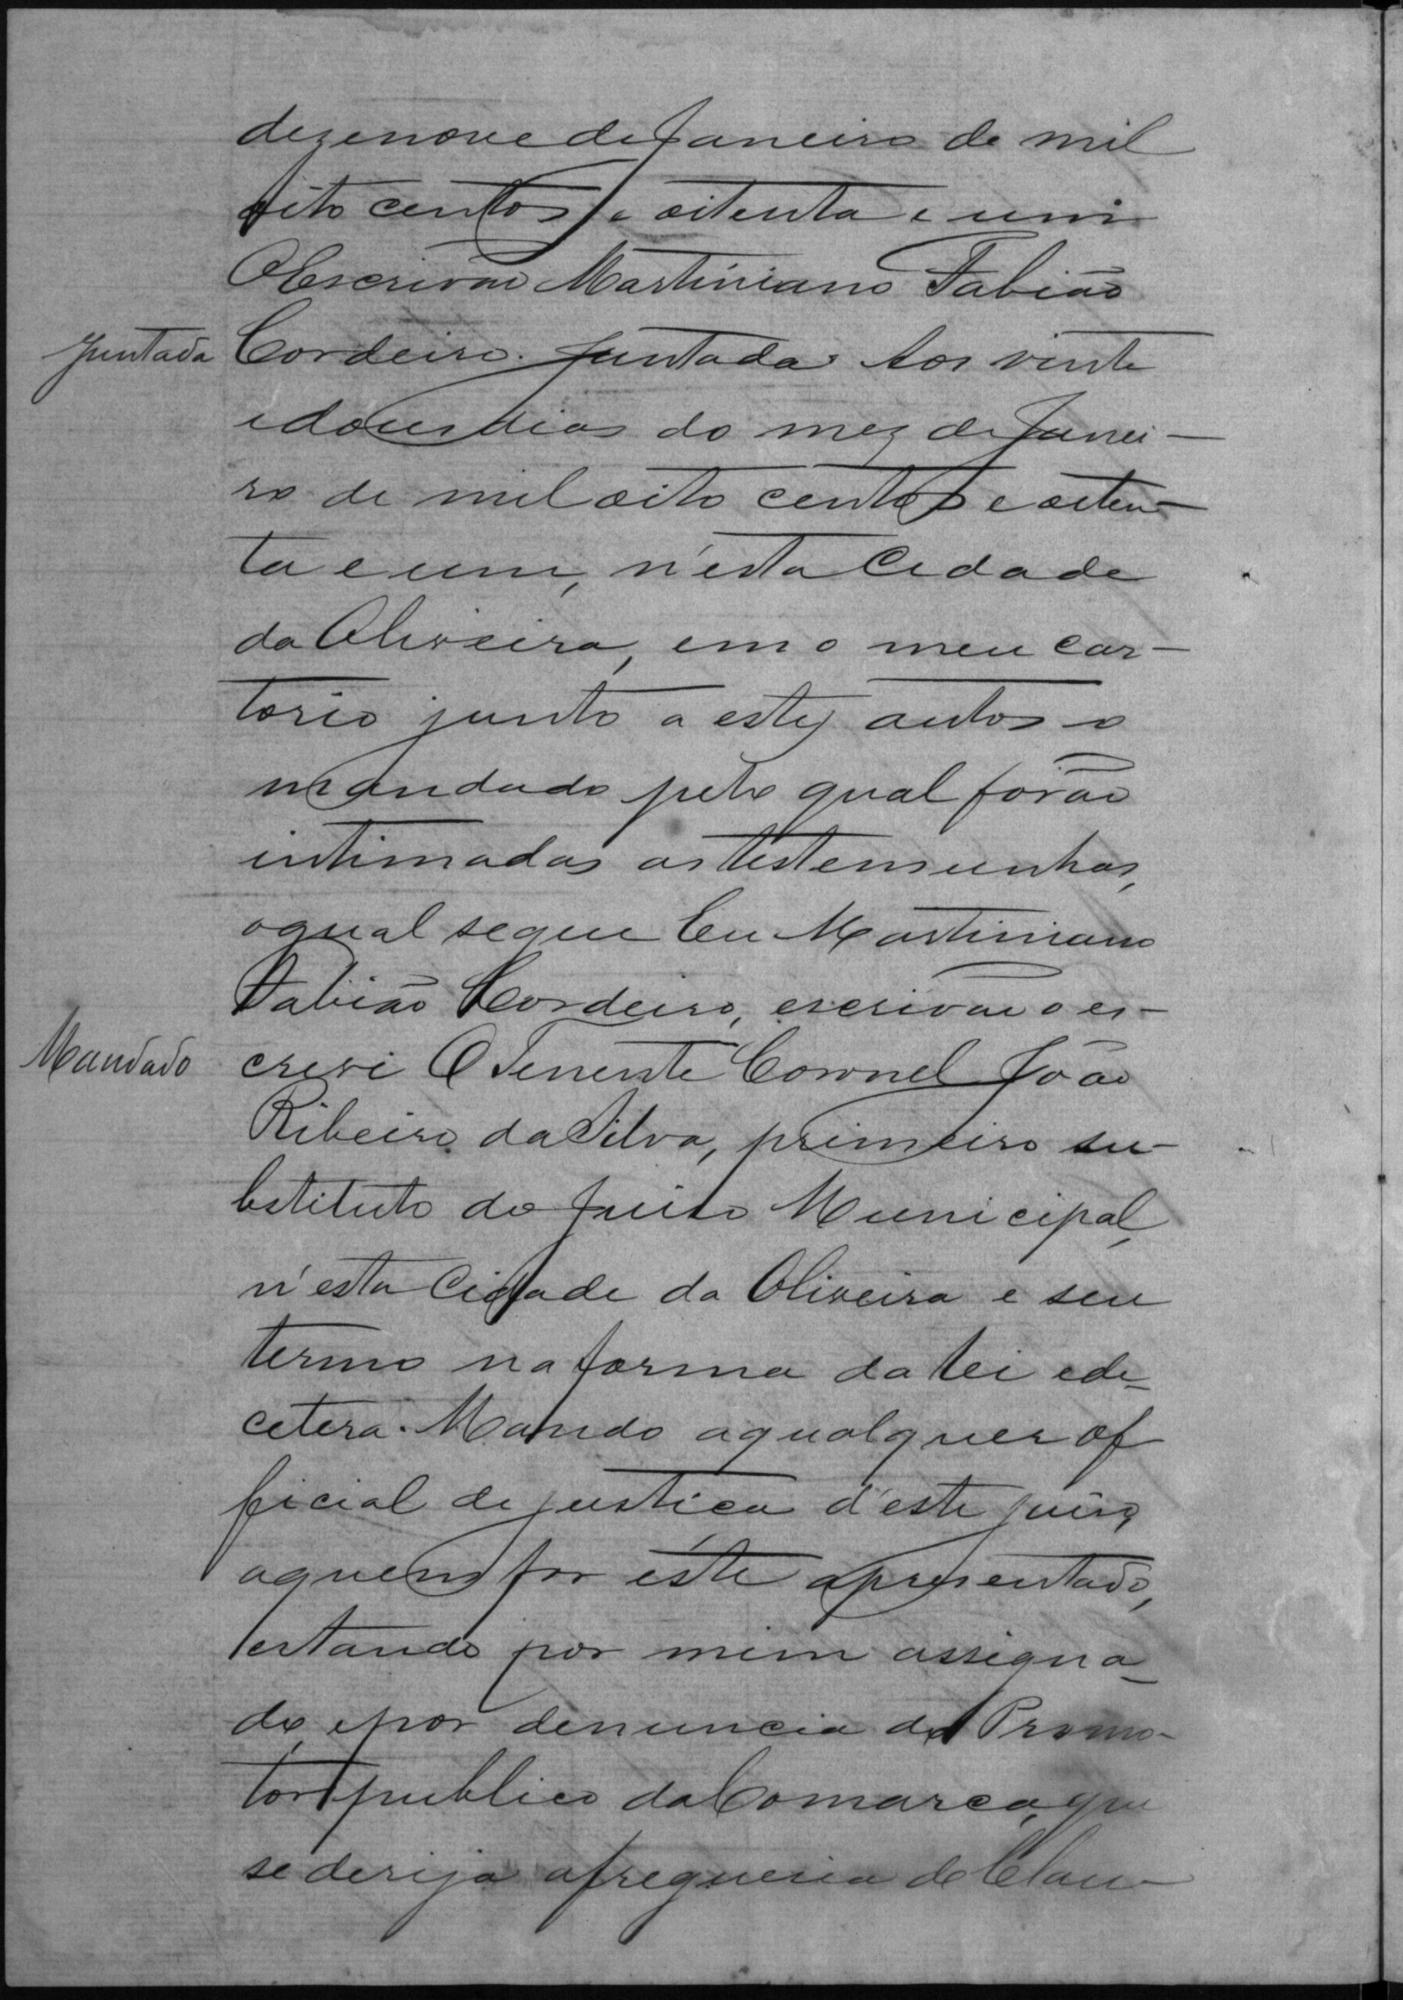 dezenove de Janeiro de mil
oito centos e oitenta e um
O Escrivão Martiniano Fabião
Juntada
Cordeiro. Juntada. Aos vinte
e dous dias do mez de Janei-
ro de mil oito centos e oiten-
ta e um, n'esta Cidade
da Oliveira, em o meu car-
torio junto a estes autos o
mandado pelo qual forão
intimadas as testemunhas,
o qual segue Eu Martiniano
Fabião Cordeiro, escrivão o es-
Mandado
crevi O Tenente Coronel João
Ribeiro da Silva, primeiro su-
bstituto do Juiso Municipal,
n'esta Cidade da Oliveira e seu
termo na forma da Lei ede-
cetera. Mando a qualquer of
ficial de justica d'este juiso,
a quem for este apresentado,
estando por mim assigna-
do, e por denuncia do Promo-
tor publico da Comarca, que
se derija a freguesia de Clau-